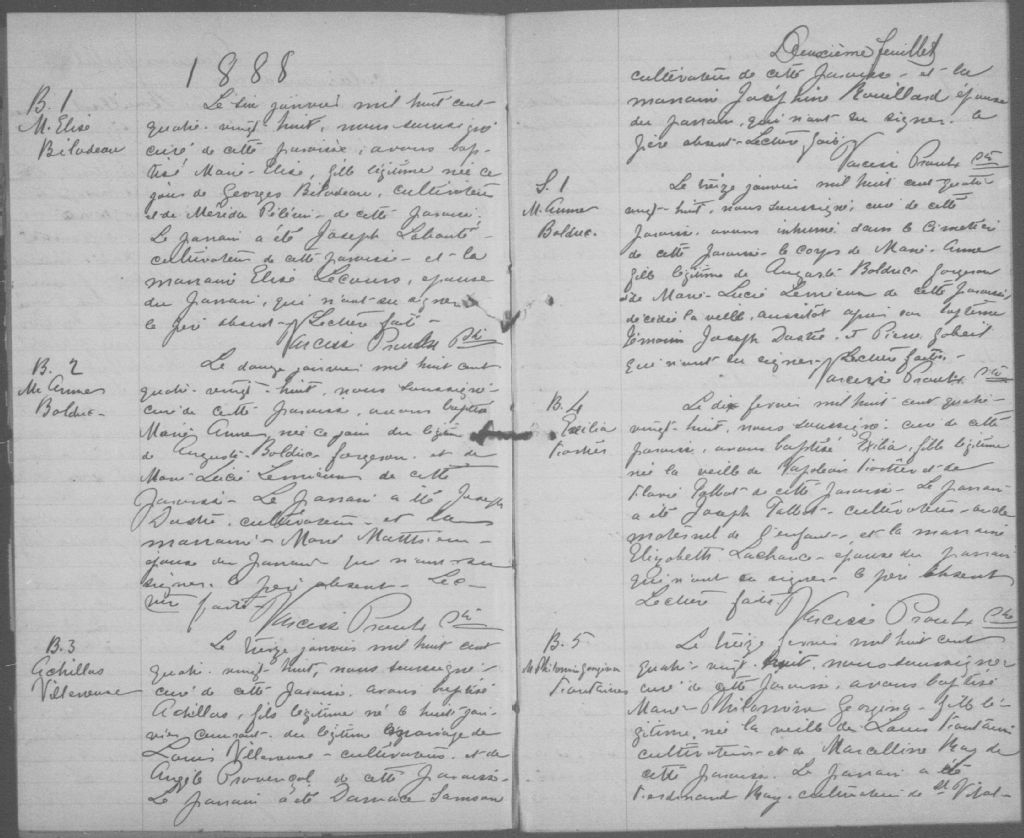 1888
B. 1
M. Elise
Bilodeau
Le six janvier mil huit cent
quatre-vingt huit, nous soussigné
curé de cette paroisse, avons bap-
tisé Marie Elise, fille légitime née ce
jour de Georges Bilodeau, cultivateur
et de de cette paroisse.
Le parrain a été Joseph Labonté
cultivateur de cette paroisse - et la
marraine Elise Lecours, épouse
du parrain, qui n'ont su signer
le père absent - Lecture faite -
Narcisse Proulx Ptre
B. 2
M. Anne
Bolduc
Le douze janvier mil huit cent
quatre-vingt-huit, nous soussigné
curé de cette paroisse, avons baptisé
Marie Anne, née ce jour du légitime
de Auguste Bolduc forgeron et de
Marie Lucie Lemieux de cette
paroisse - Le parrain a été Joseph
cultivateur - et la
marraine - Marie Matthieu -
épouse du parrain qui n'ont su
signer. le père absent - Lec-
ture faite -
Narcisse Proulx Ptre
B. 3
Achillas
Villeneuve
Le treize janvier mil huit cent
quatre-vingt huit, nous soussigné
curé de cette paroisse, avons baptisé
Achillas, fils légitime né le huit jan-
vier courant - du légitime mariage de
Louis Villeneuve - cultivateur et de
Angèle Provençal de cette paroisse.
Le parrain a été Damase Samson
Deuxième feuillet
cultivateur de cette paroisse - et la
marraine Joséphine Rouillard épouse
du parrain, qui n'ont su signer. le
père absent - Lecture faite
Narcisse Proulx Ptre
S. 1
M. Anne
Bolduc
Le treize janvier mil huit cent quatre
vingt-huit, nous soussigné, curé de cette
paroisse, avons inhumé dans le cimetière
de cette paroisse - le corps de Marie-Anne
fille légitime de Auguste Bolduc forgeron
et de Marie-Lucie Lemieux de cette paroisse,
décédée la veille, aussitôt après son baptême
Témoins Joseph et Pierre Gobeil
qui n'ont su signer - Lecture faite -
Narcisse Proulx Ptre
B. 4
Exilia
Fortier
Le dix fevrier mil huit cent quatre-
vingt-huit, nous soussigné curé de cette
paroisse, avons baptisé Exilia, fille légitime
née la veille de Napoléon Fortier et de
Flavie Talbot de cette paroisse - Le parrain
a été Joseph Talbot - cultivateur -
maternel de l'enfant - et la marraine
Elizabeth Lachance - épouse du parrain
qui n'ont su signer - le père absent
Lecture faite
Narcisse Proulx Ptre
B. 5
M. Philomène Georgina
Fontaine
Le treize fevrier mil huit cent
quatre-vingt huit, nous soussigné
curé de cette paroisse, avons baptisé
Marie Philomène Georgina - fille lé-
gitime née la veille de Louis Fontaine
cultivateur et de Marcelline Roy de
cette paroisse. Le parrain a été
Ferdinand Roy - cultivateur de St Vital